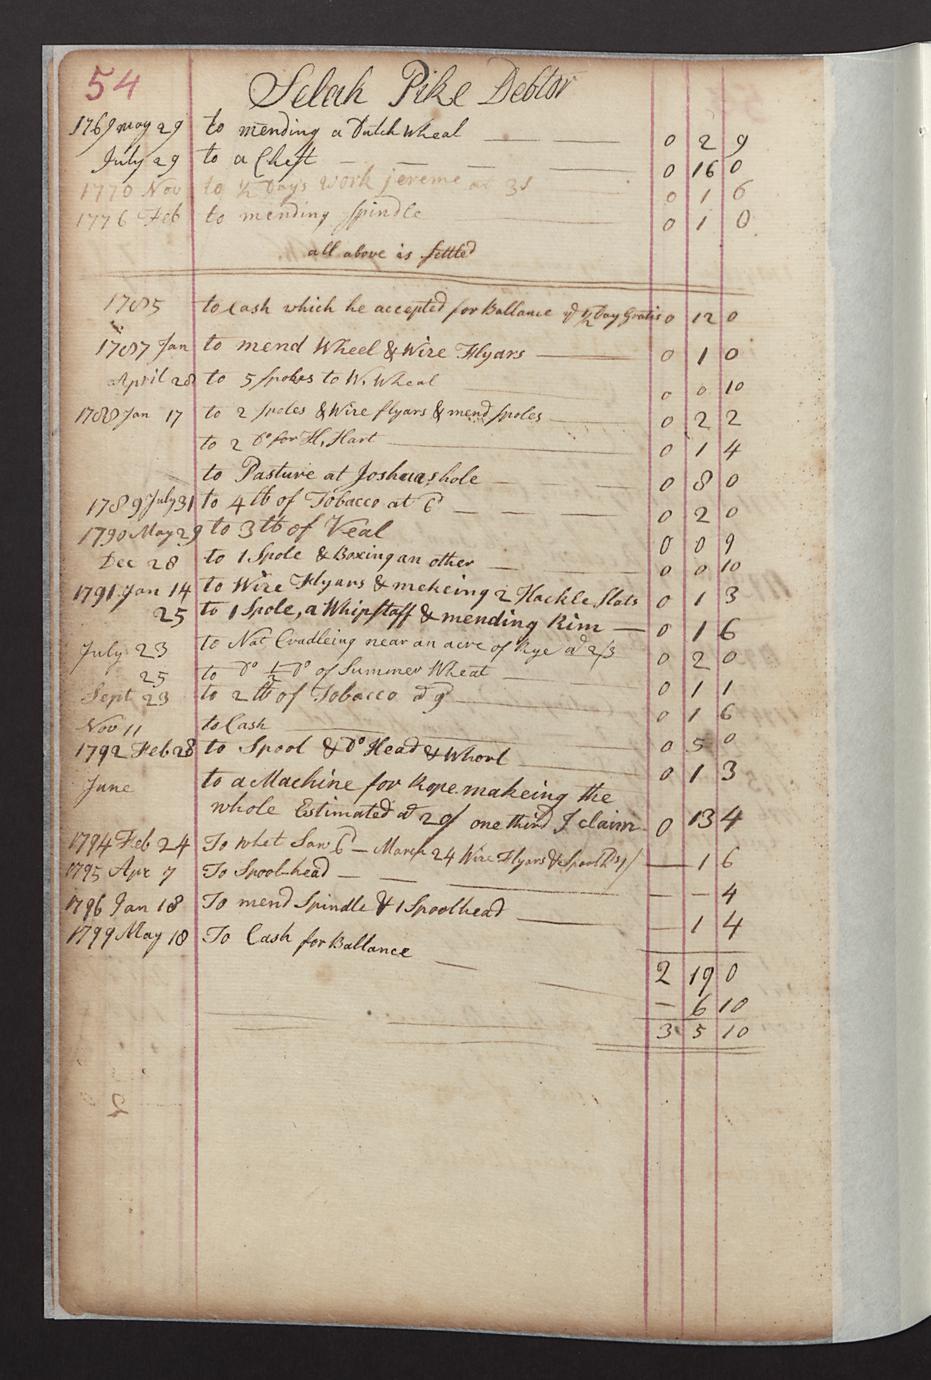 54 Selah Pike Debtor
1769 may 29 to mending a Dutch Wheal 0 2 9
July 29 to a Chest 0 16 0
1770 Nov to 1/2 Days work jereme at 3s 0 1 6
1776 Feb to mending spindle 0 1 0
all above is settled
1785 to Cash which he accepted for Ballance & 1/2 Day Gratis 0 12 0
1787 Jan to mend Wheel & Wire Flyars 0 1 0
april 28 to 5 spokes to W. Wheal 0 0 10
1788 Jan 17 to 2 spoles & Wire flyars & mend spoles 0 2 2
to 2 do for H, Hart 0 1 4
to Pasture at Joshuashole 0 8 0
1789 July 31 to 4 lb of Tobacco at 6d 0 2 0
1790 May 29 to 3 lb of Veal 0 0 9
Dec 28 to 1 Spole & Boxing an other 0 0 10
1791 Jan 14 to Wire Flyars & mekeing 2 Hackle slats 0 1 3
25 to 1 Spole, a Whipstaff & mending Rim 0 1 6
July 23 to Nat Cradleing near an acre of Rye at 2/3 0 2 0
25 to Do 1/2 Do of Summer Wheat 0 1 1
Sept 23 to 2 lb of Tobacco at 9d 0 1 6
Nov 11 to Cash 0 5 0
1792 Feb 28 to Spool & Do Head & Whorl 0 1 3
June to a Machine for Rope makeing the
whole Estimated at 20/ one third I claim 0 13 4
1794 Feb 24 To whet Saw 6d — March 24 Wire Flyers & Spool 1/ — 1 6
1795 Apr 7 To Spool-head — — 4
1796 Jan 18 To mend Spindle & 1 Spoolhead — 1 4
1799 May 18 To Cash for Ballance
2 19 0
— 6 10
3 5 10